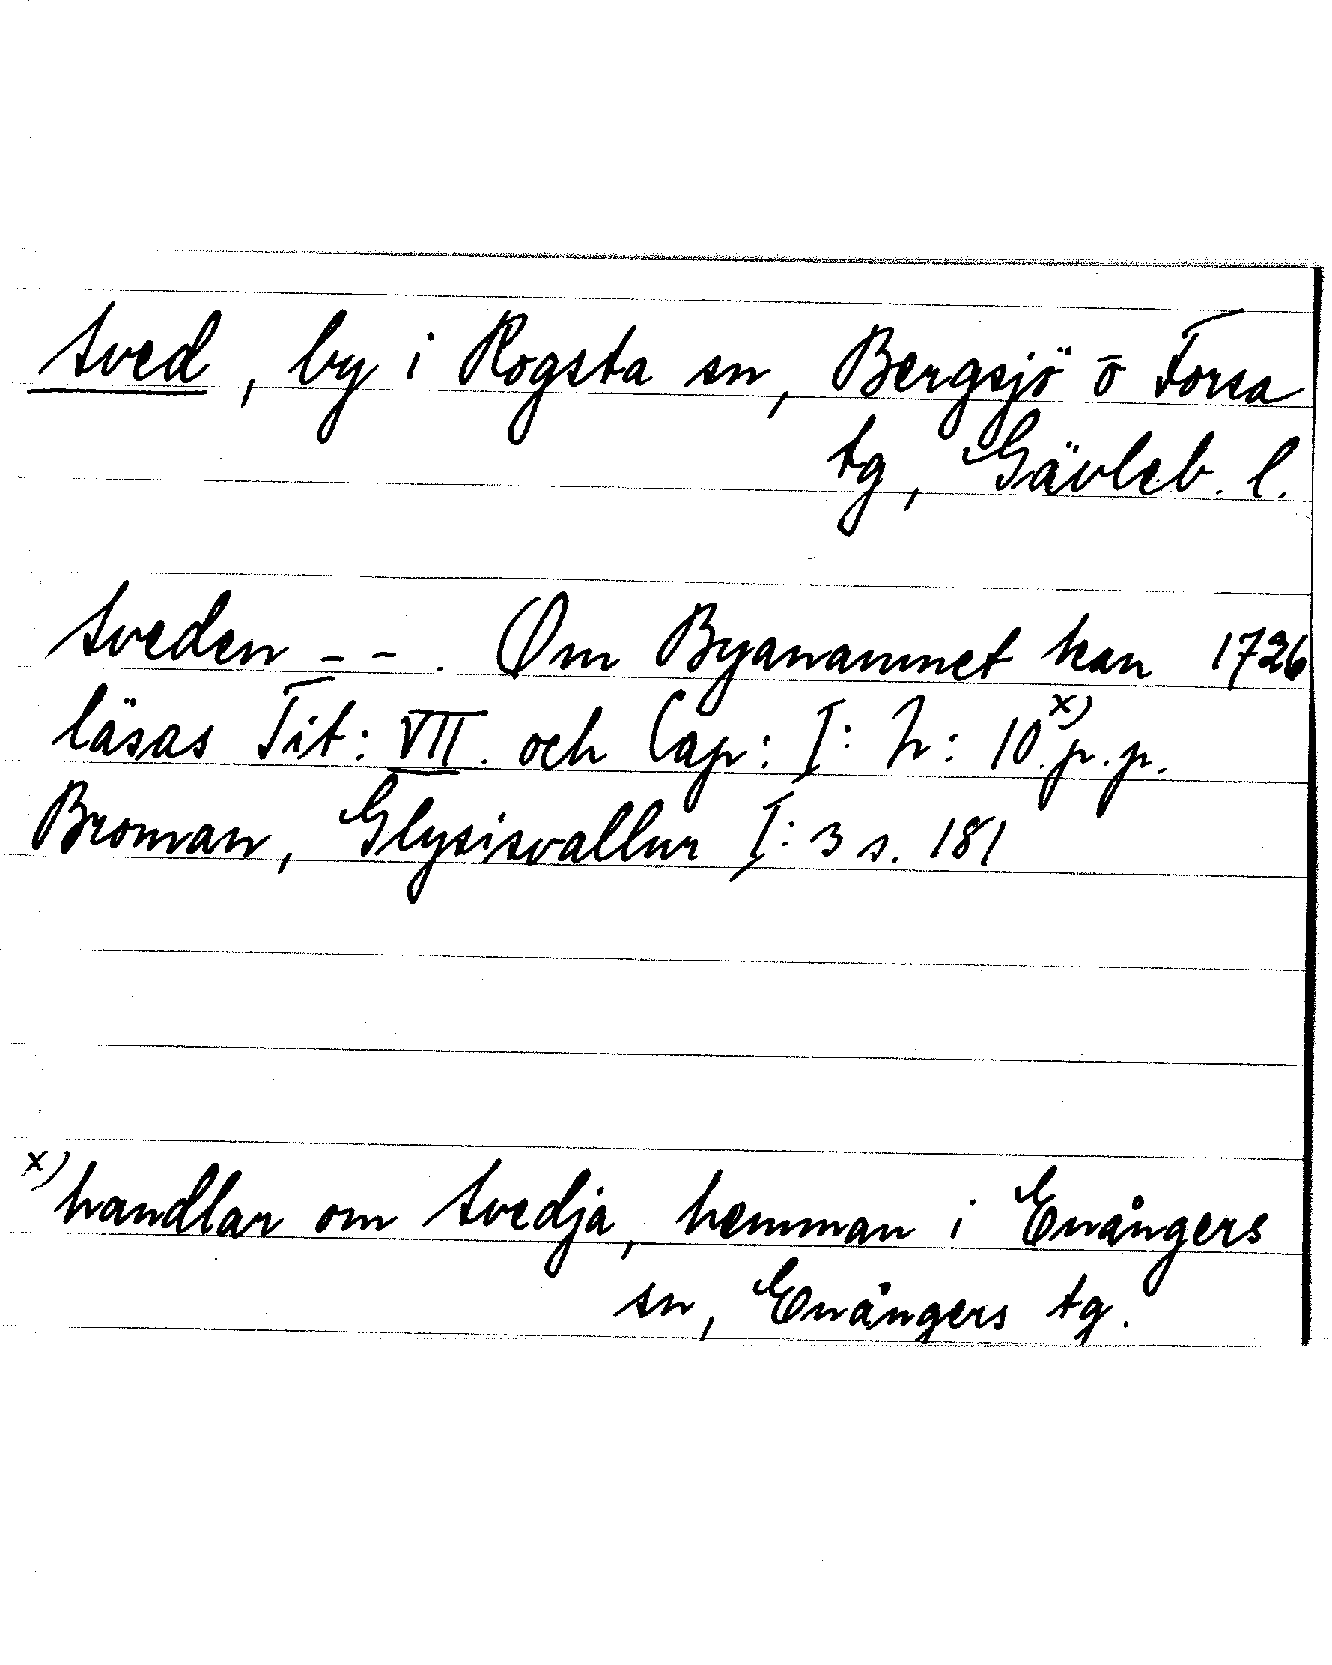 Sved, by i Rogsta sn, Bergsjö o Forsa
tg, Gävleb. l.
Sveden - - . (Om Byanamnet kan 1726
läsas Tit: VII. och Cap: I: h: 10.x) p.p.
Broman, Glysisvallur I: 3 s. 181
x) handlar om Svedja, hemman i Enångers
sn, Enångers tg.